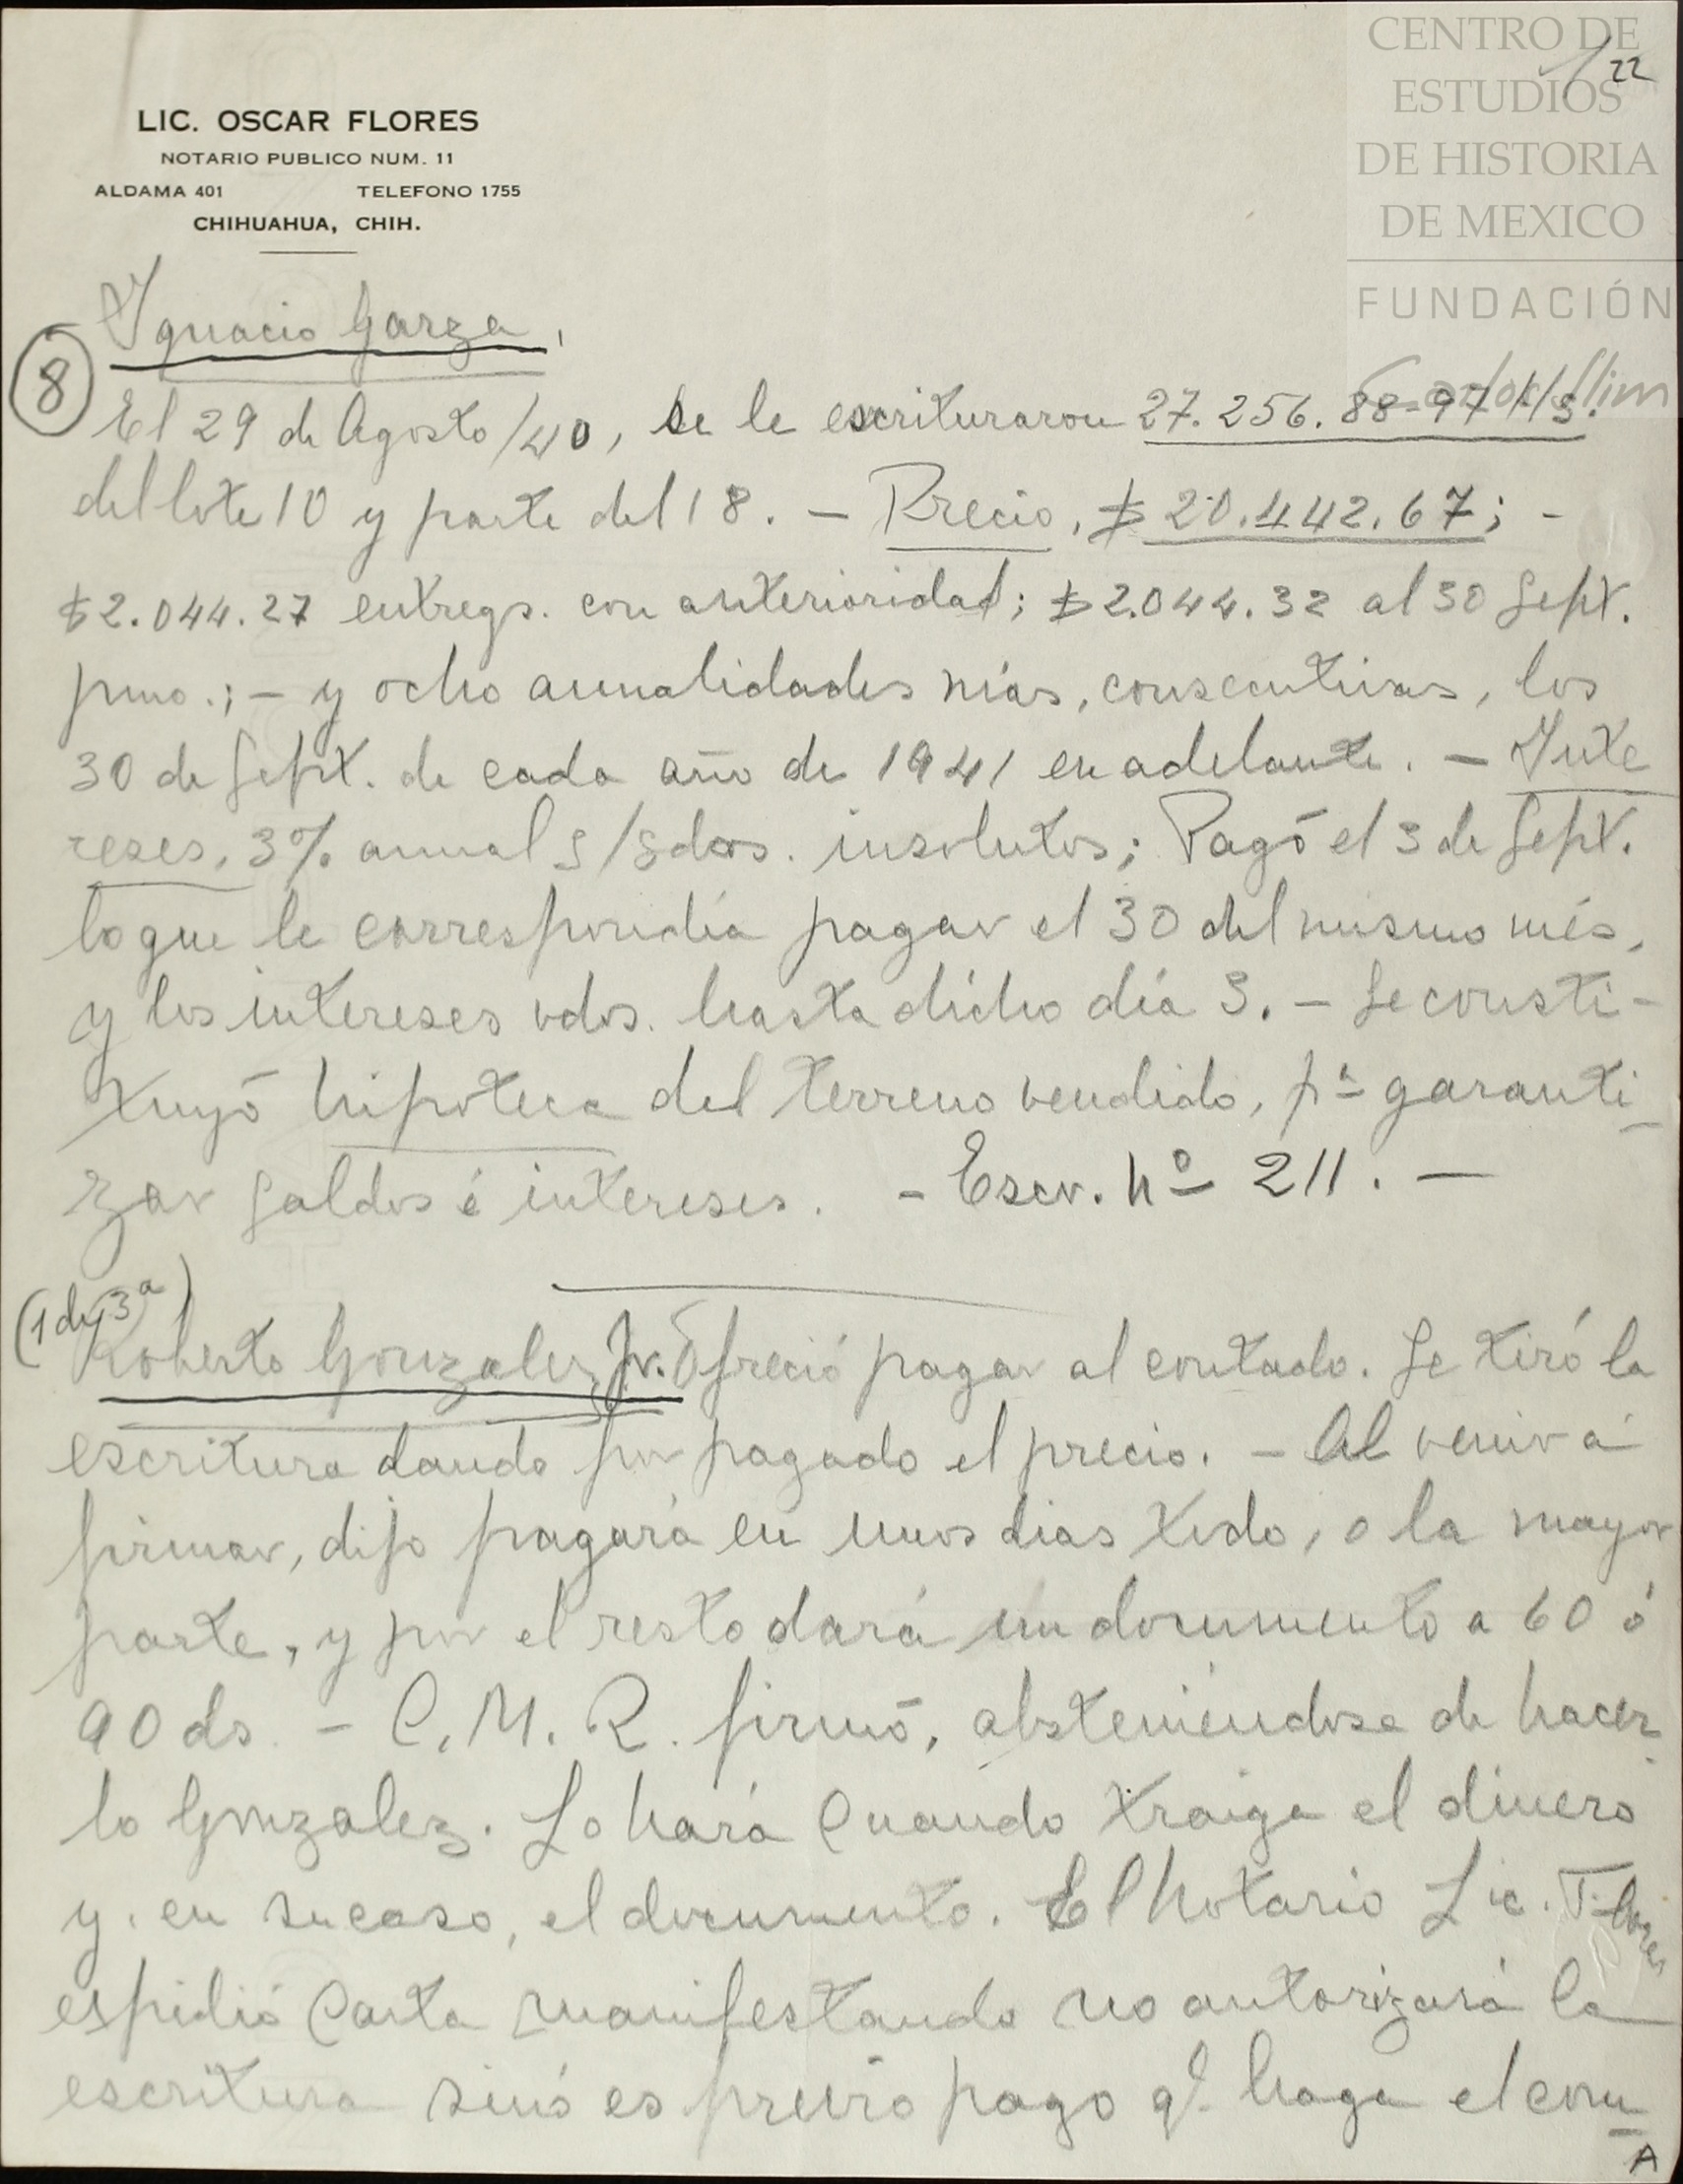 CENTRO DE
ESTUDIOS
DE HISTORIA
DE MEXICO
FUNDACIÓN
Carlos Slim
22
LIC. OSCAR FLORES
NOTARIO PUBLICO NUM. 11
ALDAMA 401 TELEFONO 1755
CHIHUAHUA, CHIH.
Ignacio Garza.
8
El 29 de Agosto/40, se le escrituraron 27.256.88-97 Hs.
del lote 10 y parte del 18. — Precio, $ 20.442.67; -
$2.044.27 entregs. con anterioridad; $2.044.32 al 30 Sept.
pmo.; — y ocho anualidades más, consecutivas, los
30 de Sept. de cada año de 1941 en adelante. — Inte
reses, 3% anual s/sdos. insolutos; Pagó el 3 de Sept.
lo que le correspondía pagar el 30 del mismo més,
y los intereses vdos. hasta dicho día 3. — Se consti-
tuyó hipoteca del terreno vendido, pa garanti-
zar saldos é intereses. - Escr. no 211. —
(1 de 3a)
Roberto Gonzalez Jr. Ofreció pagar al contado. Se tiró la
escritura dando por pagado el precio. — Al venir á
firmar, dijo pagará en unos dias todo, o la mayor
parte, y por el resto dará un documento a 60 ó
90 ds. — C. M. R. firmó, absteniendose de hacer-
lo Gonzalez. Lo hará cuando traiga el dinero
y, en su caso, el documento. El Notario Lic. Flores
espidió Carta manifestando no autorizará la
escritura sinó es previo pago q. haga el com-
A